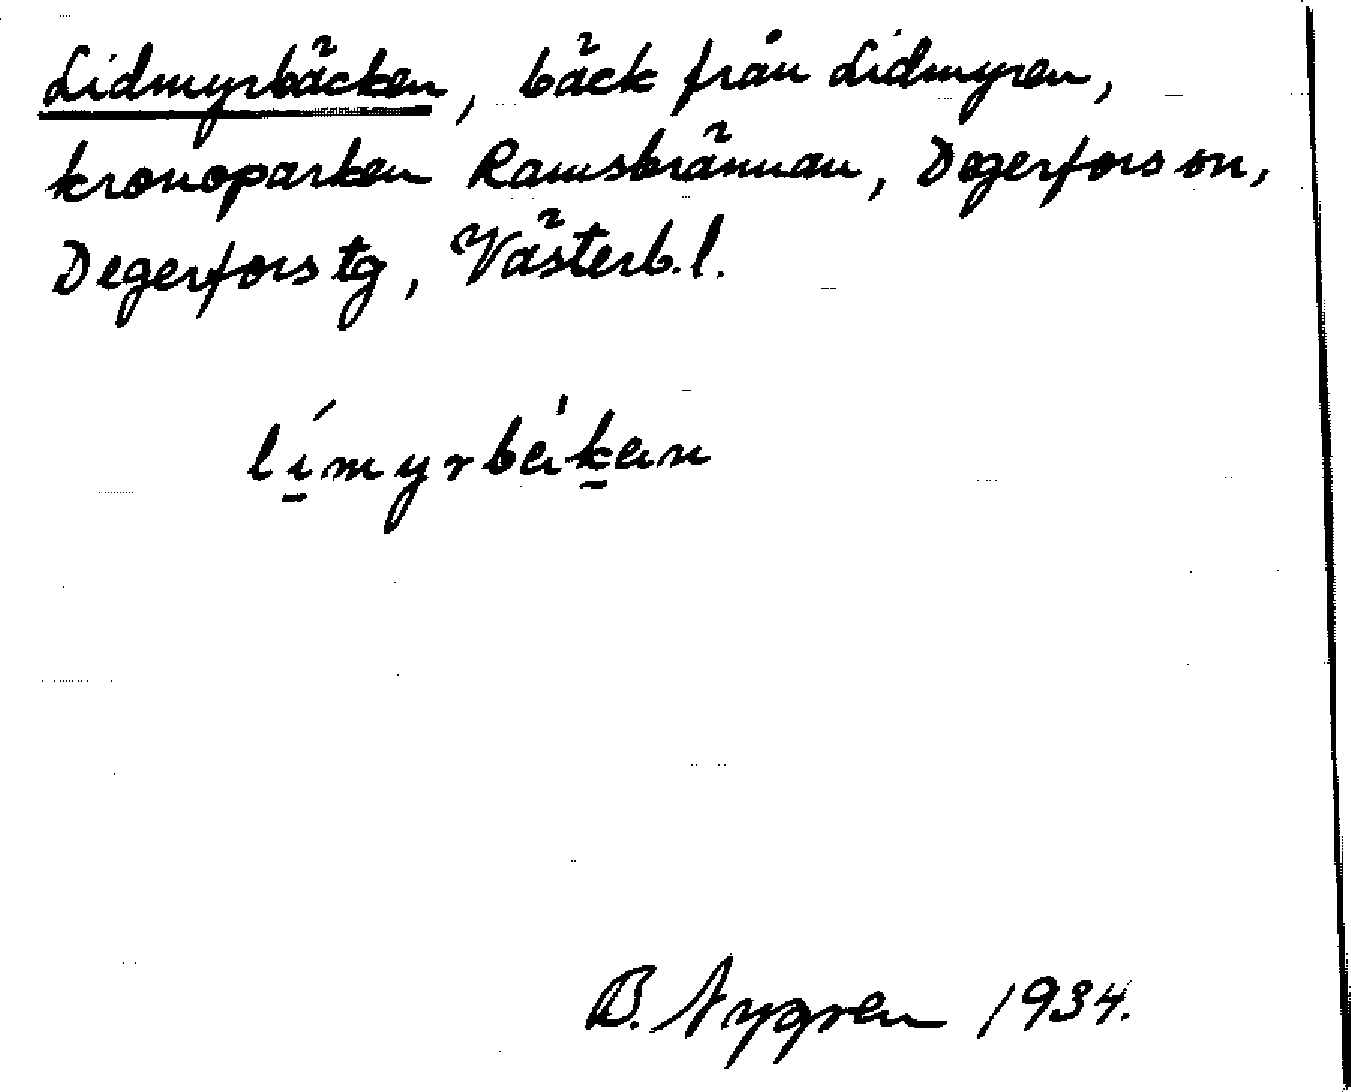 Lidmyrbäcken, bäck från Lidmyren,
kronoparken Ramsbrännan, Degerfors sn,
Degerfors tg, Västerb.l.
B. Nygren 1934.